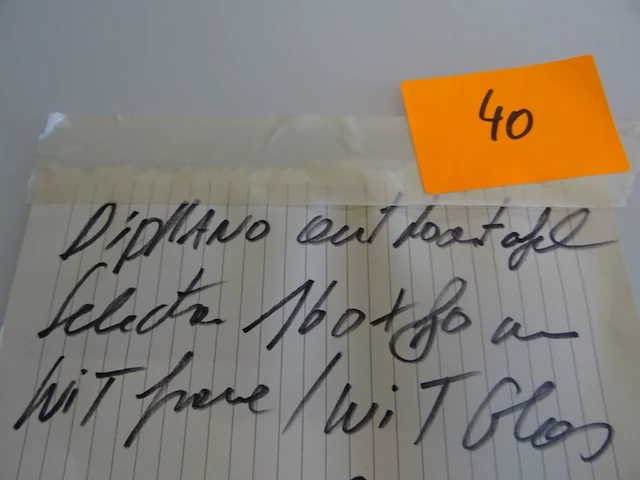 40
DipHANO eettoontafel
Selecta 160 x 80 cm
WiT frame / WiT Glas